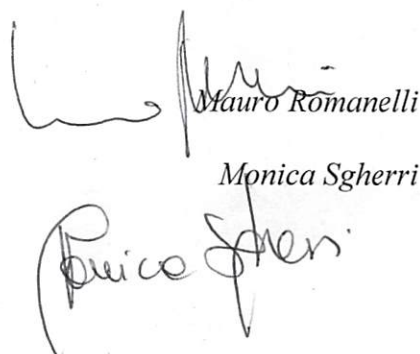 Mauro Romanelli
Monica Sgherri
Monica Sgherri